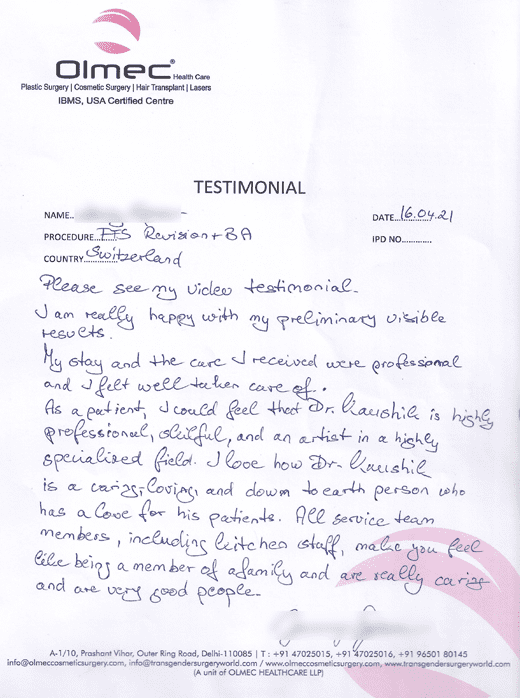 Olmec® Health Care
Plastic Surgery | Cosmetic Surgery | Hair Transplant | Lasers
IBMS, USA Certified Centre
TESTIMONIAL
NAME..
DATE..16.04.21
PROCEDURE...FFS Revision + BA
IPD NO............
COUNTRY Switzerland
Please see my video testimonial.
I am really happy with my preliminary visible
results.
My stay and the care I received were professional
and I felt well taken care of.
As a patient, I could feel that Dr. Kaushik is highly
professional, skilful, and an artist in a highly
specialized field. I love how Dr. Kaushik
is a caring, loving, and down to earth person who
has a love for his patients. All service team
members, including kitchen staff, make you feel
like being a member of a family and are really caring
and are very good people.
A-1/10, Prashant Vihar, Outer Ring Road, Delhi-110085 | T : +91 47025015, +91 47025016, +91 96501 80145
info@olmeccosmeticsurgery.com, info@transgendersurgeryworld.com / www.olmeccosmeticsurgery.com, www.transgendersurgeryworld.com
(A unit of OLMEC HEALTHCARE LLP)